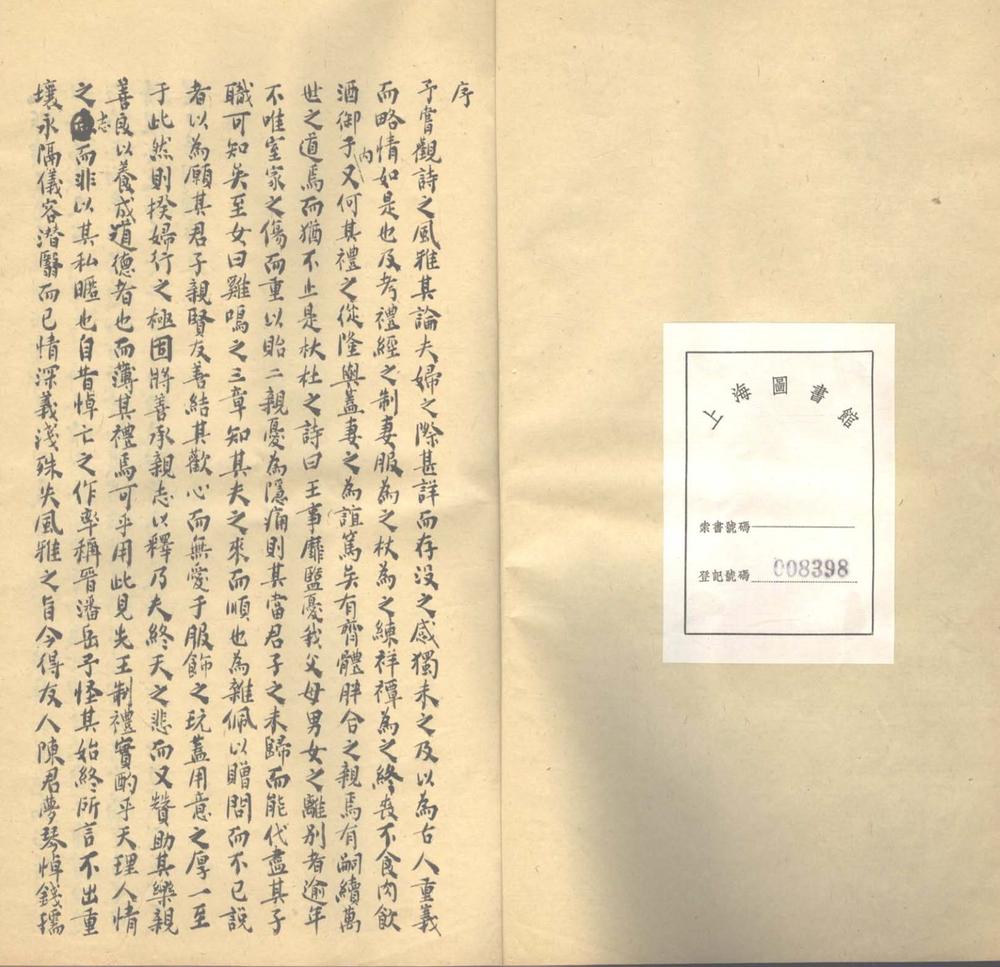 上海圖書館
索書號碼
登記號碼 008398
序
予嘗觀詩之風雅其論夫婦之際甚詳而存没之感獨未之及以為古人重義
而略情如是也及考禮經之制妻服為之杖為之練祥禫為之終喪不食肉飲
酒御于内又何其禮之從隆與蓋妻之為誼篤矣有齊體胖合之親焉有嗣續萬
世之道焉而猶不止是杕杜之詩曰王事靡盬憂我父母男女之離别者逾年
不唯室家之傷而重以貽二親憂為隱痛則其當君子之未歸而能代盡其子
職可知矣至女曰雞鳴之三章知其夫之來而順也為雜佩以贈問而不已説
者以為願其君子親賢友善結其歡心而無愛于服飾之玩蓋用意之厚一至
于此然則揆婦行之極固將善承親志以釋乃夫終天之悲而又贊助其樂親
善良以養成道德者也而薄其禮焉可乎用此見先王制禮實酌乎天理人情
之志而非以其私暱也自昔悼亡之作率稱晉潘岳予怪其始終所言不出重
壤永隔儀容潛翳而已情深義淺殊失風雅之旨今得友人陳君夢琴悼錢孺